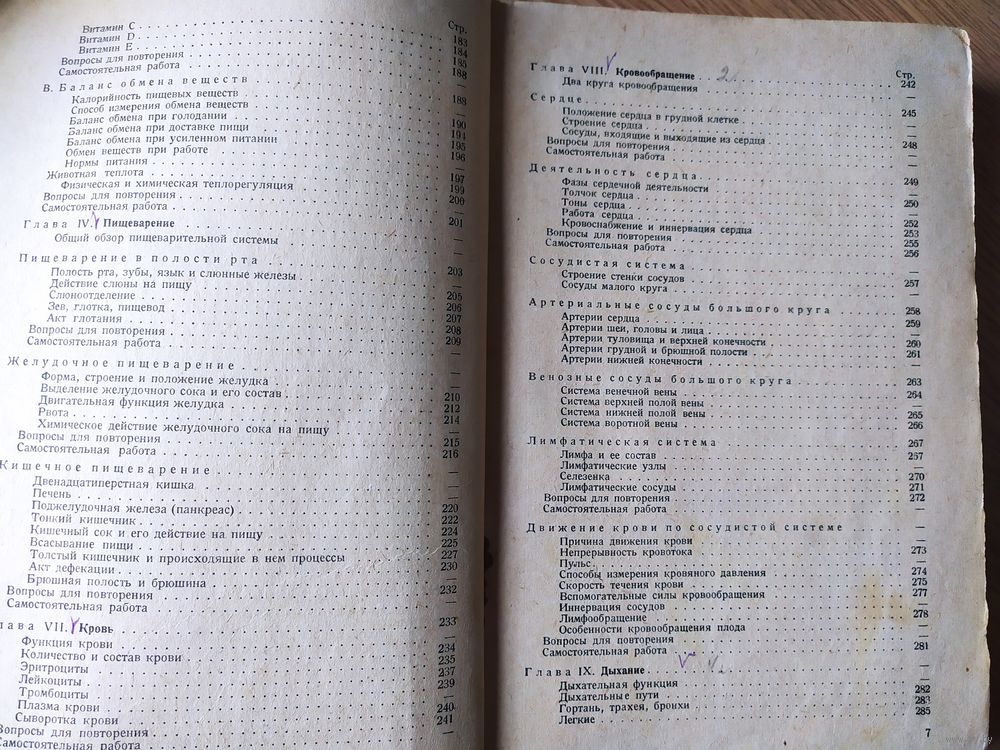 Стр.
Витамин C 183
Витамин D 184
Витамин E 185
Вопросы для повторения 188
Самостоятельная работа —
В. Баланс обмена веществ
Калорийность пищевых веществ 188
Способ измерения обмена веществ —
Баланс обмена при голодании 190
Баланс обмена при доставке пищи 194
Баланс обмена при усиленном питании 195
Обмен веществ при работе 196
Нормы питания —
Животная теплота 197
Физическая и химическая теплорегуляция 199
Вопросы для повторения 200
Самостоятельная работа —
Глава IV. Пищеварение 201
Общий обзор пищеварительной системы —
Пищеварение в полости рта
Полость рта, зубы, язык и слюнные железы 203
Действие слюны на пищу —
Слюноотделение 205
Зев, глотка, пищевод 206
Акт глотания 207
Вопросы для повторения 208
Самостоятельная работа 209
Желудочное пищеварение —
Форма, строение и положение желудка —
Выделение желудочного сока и его состав 210
Двигательная функция желудка 212
Рвота 214
Химическое действие желудочного сока на пищу —
Вопросы для повторения 215
Самостоятельная работа 216
Кишечное пищеварение —
Двенадцатиперстная кишка —
Печень —
Поджелудочная железа (панкреас) 220
Тонкий кишечник 222
Кишечный сок и его действие на пищу 224
Всасывание пищи 225
Толстый кишечник и происходящие в нем процессы 227
Акт дефекации 230
Брюшная полость и брюшина —
Вопросы для повторения 232
Самостоятельная работа —
лава VII. Кровь 233
Функция крови —
Количество и состав крови 234
Эритроциты 235
Лейкоциты 237
Тромбоциты 239
Плазма крови —
Сыворотка крови 240
Вопросы для повторения 241
Самостоятельная работа —
Стр.
Глава VIII. Кровообращение 2. 242
Два круга кровообращения —
Сердце
Положение сердца в грудной клетке 245
Строение сердца —
Сосуды, входящие и выходящие из сердца —
Вопросы для повторения 248
Самостоятельная работа —
Деятельность сердца —
Фазы сердечной деятельности 249
Толчок сердца —
Тоны сердца 250
Работа сердца —
Кровоснабжение и иннервация сердца 252
Вопросы для повторения 253
Самостоятельная работа 255
Сосудистая система 256
Строение стенки сосудов —
Сосуды малого круга 257
Артериальные сосуды большого круга —
Артерии сердца 258
Артерии шеи, головы и лица 259
Артерии туловища и верхней конечности —
Артерии грудной и брюшной полости 260
Артерии нижней конечности 261
Венозные сосуды большого круга 263
Система венечной вены 264
Система верхней полой вены —
Система нижней полой вены 265
Система воротной вены 266
Лимфатическая система 267
Лимфа и ее состав 267
Лимфатические узлы —
Селезенка 270
Лимфатические сосуды 271
Вопросы для повторения 272
Самостоятельная работа —
Движение крови по сосудистой системе —
Причина движения крови —
Непрерывность кровотока 273
Пульс —
Способы измерения кровяного давления 274
Скорость течения крови 275
Вспомогательные силы кровообращения 277
Иннервация сосудов —
Лимфообращение 278
Особенности кровообращения плода —
Вопросы для повторения —
Самостоятельная работа 281
Глава IX. Дыхание —
Дыхательная функция —
Дыхательные пути 282
Гортань, трахея, бронхи 283
Легкие 285
7